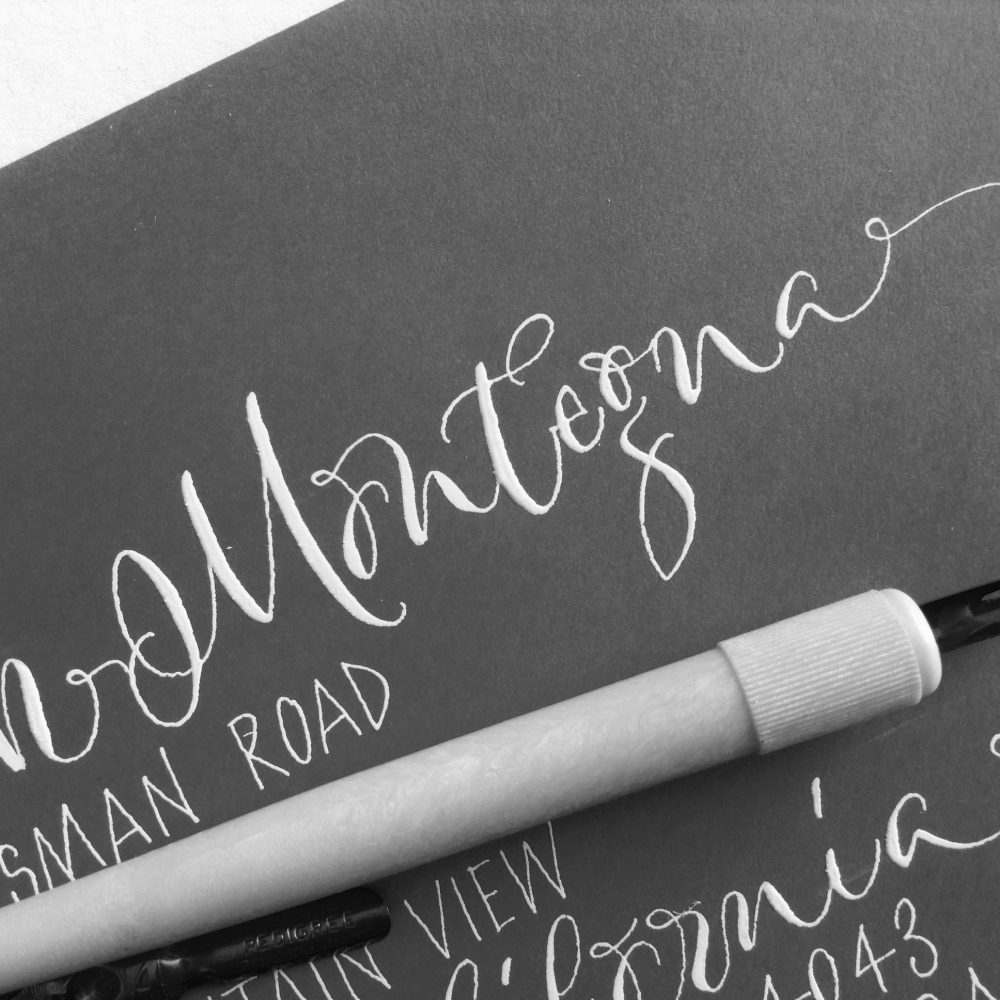 n Montegna
SMAN ROAD
TAIN VIEW
lifornia
4043
PEDIGREE